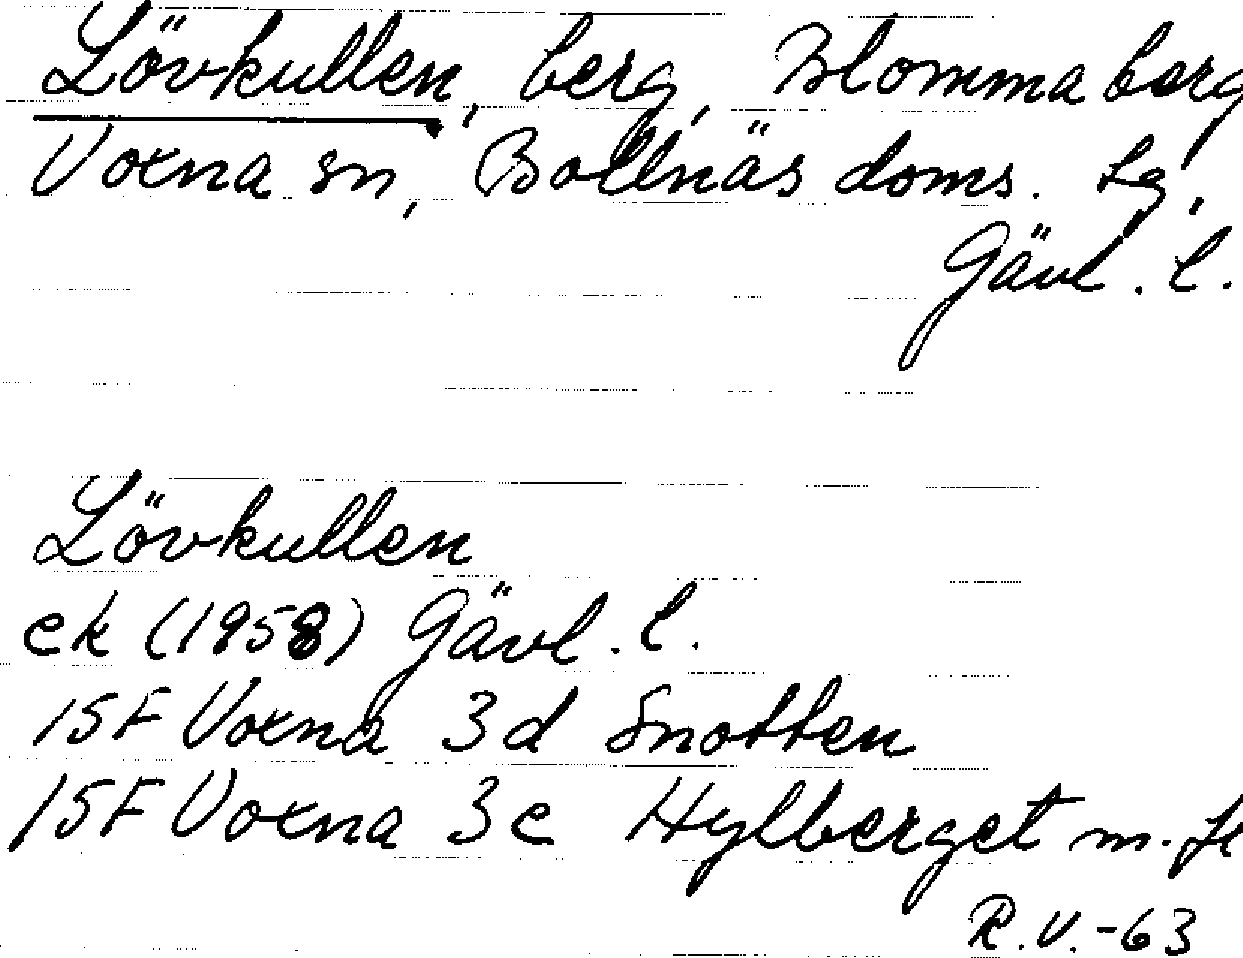 Lövkullen, berg, Blommaberg,
Voxna sn, Bollnäs doms. tg,
Gävl. l.
Lövkullen
ek (1958) Gävl. l.
15F Voxna 3d Snotten
15F Voxna 3e Hylberget m. fl
R.V.-63